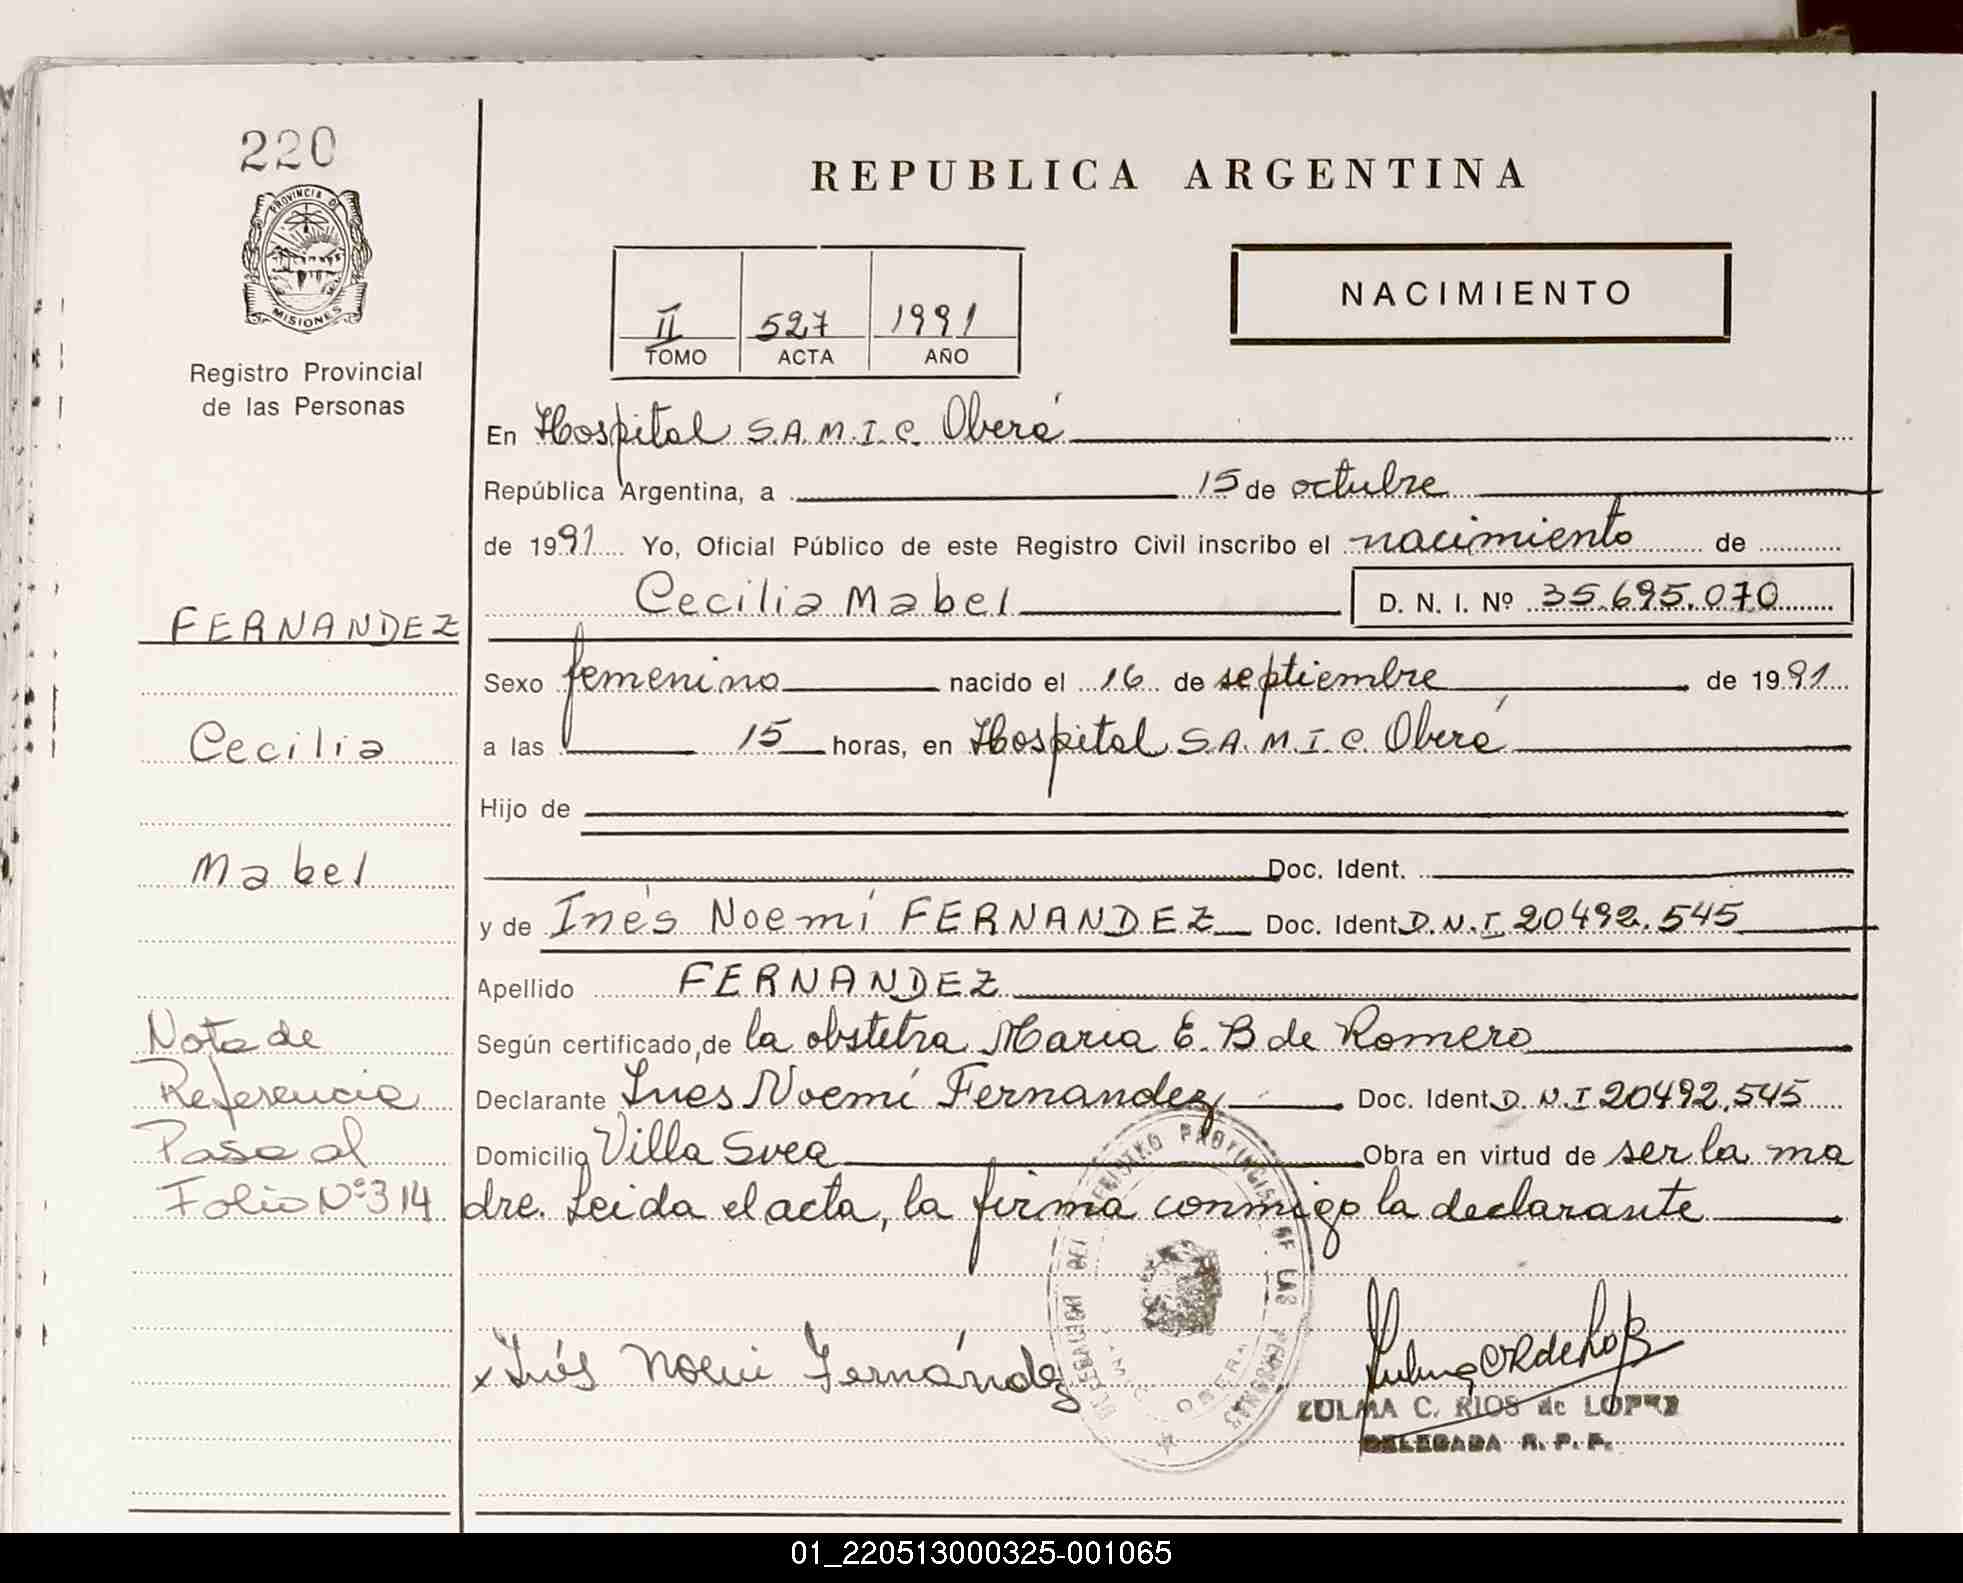 220
PROVINCIA DE
MISIONES
Registro Provincial
de las Personas
REPUBLICA ARGENTINA
II 527 1991
TOMO ACTA AÑO
NACIMIENTO
En Hospital S.A.M.I.C. Oberá
República Argentina, a 15 de octubre
de 1991 Yo, Oficial Público de este Registro Civil inscribo el nacimiento de
Cecilia Mabel D. N. I. Nº 35.695.070
FERNANDEZ
Sexo femenino nacido el 16 de septiembre de 1991
Cecilia
a las 15 horas, en Hospital S.A.M.I.C. Oberá
Hijo de
Mabel
Doc. Ident.
y de Inés Noemí FERNANDEZ Doc. Ident. D.N.I 20492.545
Apellido FERNANDEZ
Nota de
Referencia
Pasa al
Folio Nº 314
Según certificado, de la obstetra Maria E. B de Romero
Declarante Inés Noemí Fernandez Doc. Ident. D.N.I 20492.545
Domicilio Villa Svea Obra en virtud de ser la ma
dre. Leida el acta, la firma conmigo la declarante
DELEGACION DEL REGISTRO PROVINCIAL DE LAS PERSONAS
OBERA
x Inés Noemi Fernández
ZULMA C. RIOS de LOPEZ
DELEGADA R. P. P.
01_220513000325-001065